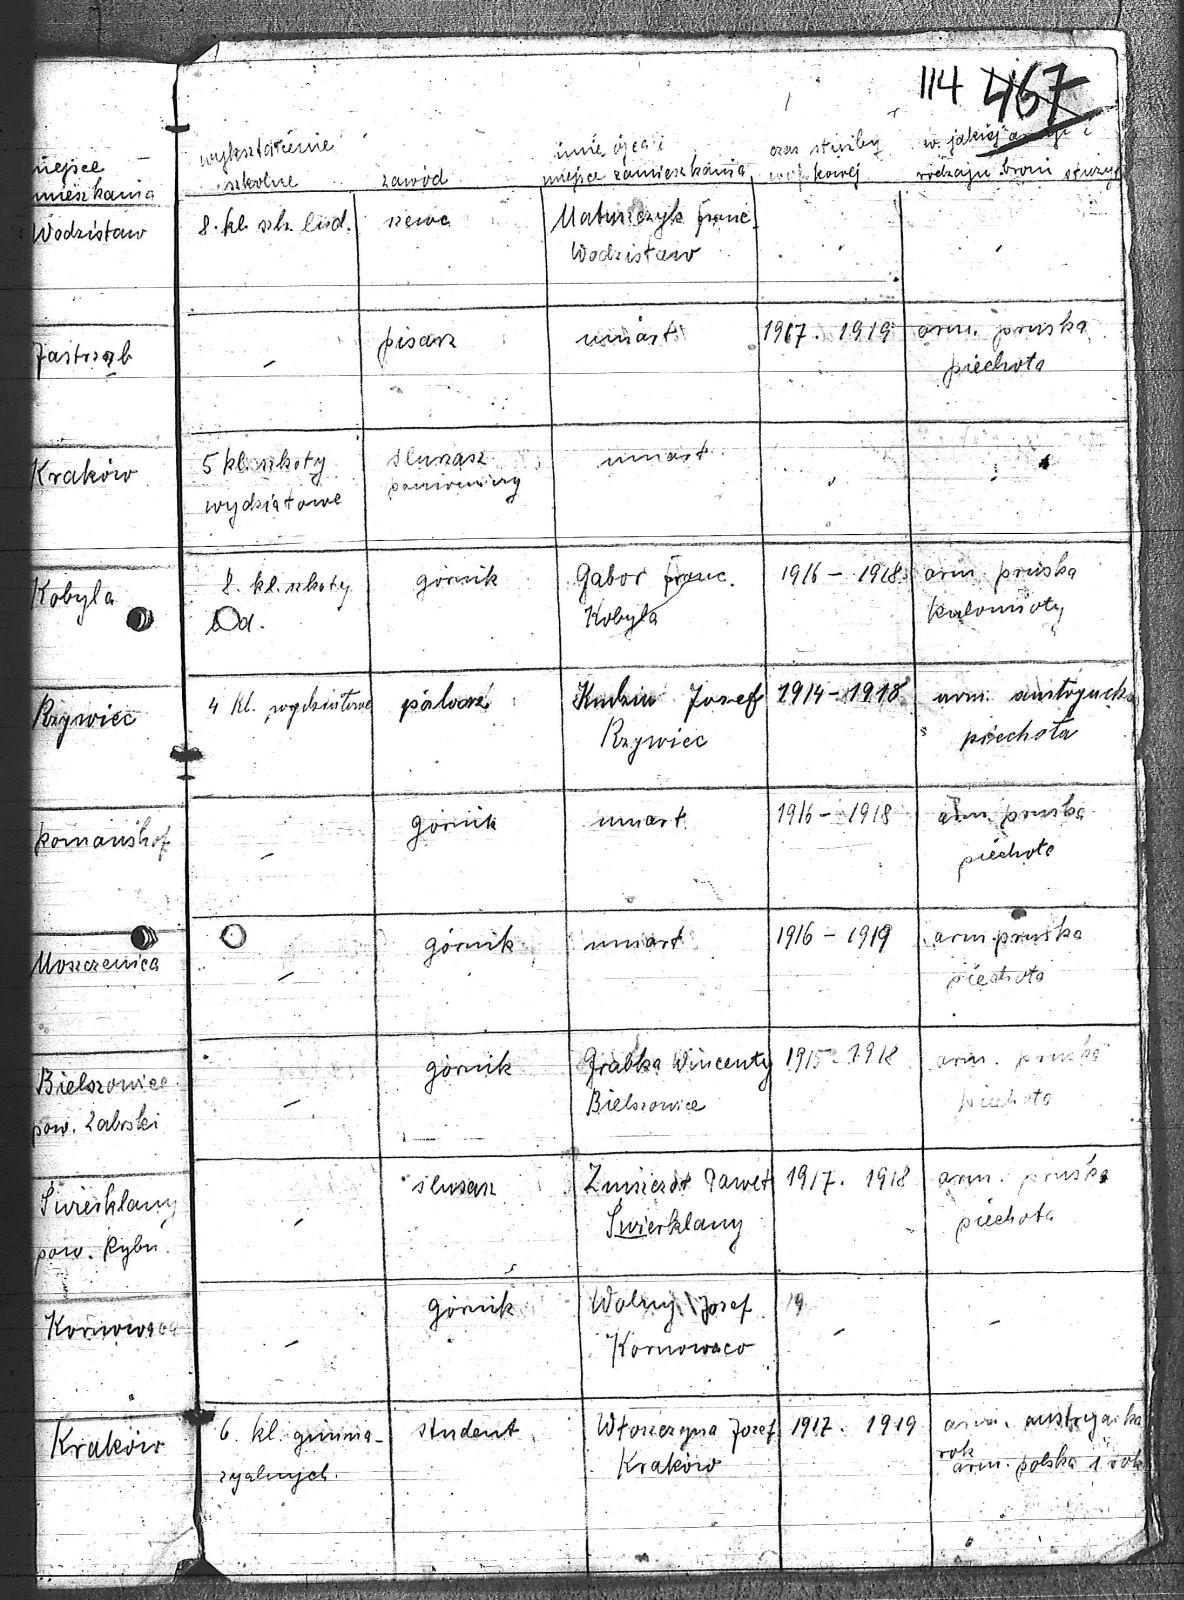 114 467
miejsce
zamieszkania
wykształcenie
szkolne
zawód
imię ojca i
miejsce zamieszkania
czas służby
wojskowej
w jakiej armji i
rodzaju broni służył
Wodzisław
8. kl. szk. lud.
szewc
Matuszczyk Franc.
Wodzisław
Jastrząb
pisarz
umarł
1917. 1919
arm. pruska
piechota
Kraków
5 kl. szkoły
wydziałowe
ślusarz
umarł
Kobyla
8. kl. szkoły
lud.
górnik
Gabor Franc.
Kobyla
1916 - 1918
arm. pruska
Rzywiec
4 kl. wydziałowe
Józef
Rzywiec
1914 - 1918
arm. austryjacka
piechota
górnik
umarł
1916 - 1918
arm. pruska
piechota
Moszczenica
górnik
umarł
1916 - 1919
arm. pruska
piechota
Bielszowice
pow. Zabrski
górnik
Grabka Wincenty
Bielszowice
1915 - 1918
arm. pruska
piechota
Świerklany
pow. Rybn.
ślusarz
Paweł
Świerklany
1917. 1918
arm. pruska
piechota
Kornowaca
górnik
Wolny Józef
Kornowaco
19
Kraków
6. kl. gimna-
zyalnych.
student
Włoszczyna Józef
Kraków
1917. 1919
arm. austryjacka
rok
arm. polska 1 rok